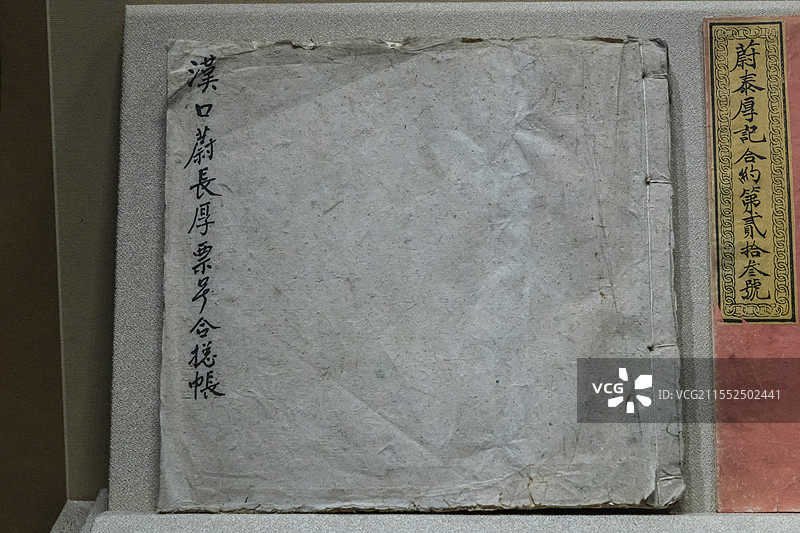 漢口蔚長厚票号合摠帳
蔚泰厚記合約第貳拾叁號
VCG
ID: VCG211552502441